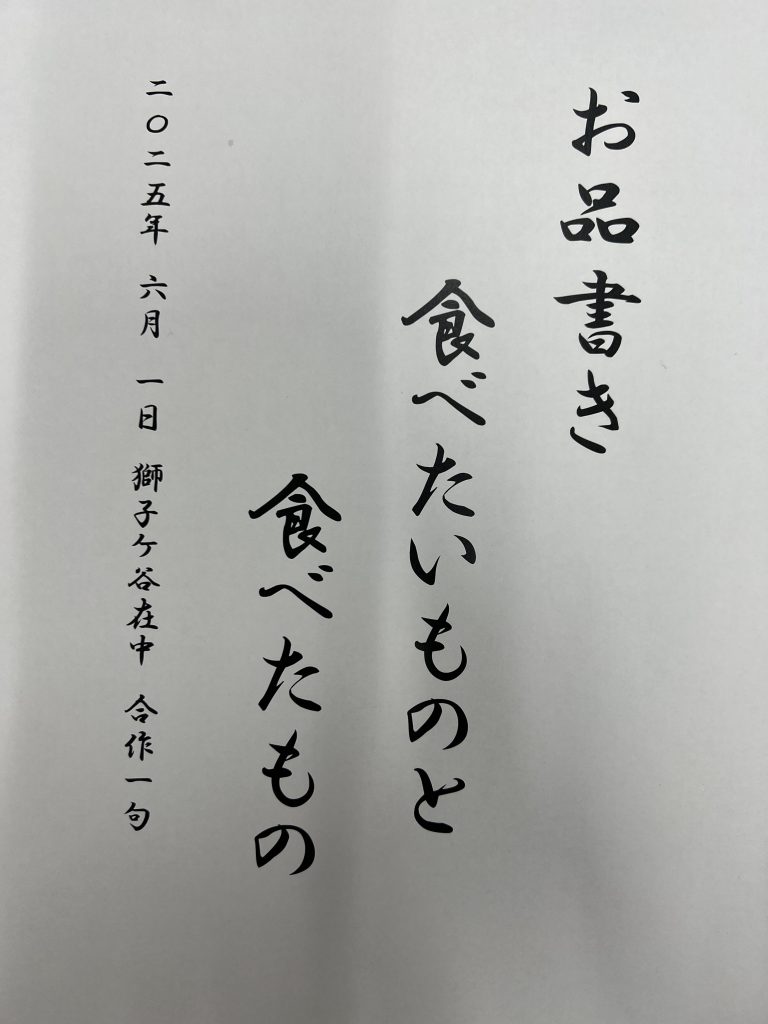 お品書き
食べたいものと
食べたもの
二〇二五年 六月 一日 獅子ケ谷在中 合作一句